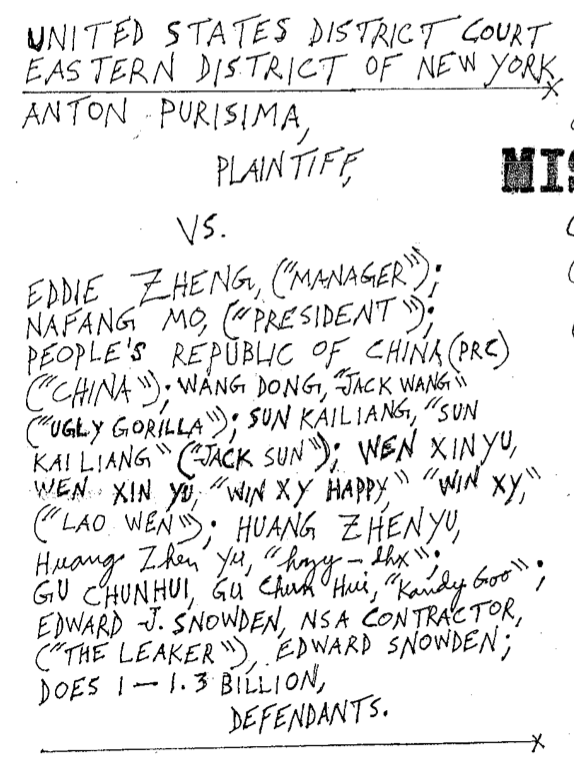 UNITED STATES DISTRICT COURT
EASTERN DISTRICT OF NEW YORK
X
ANTON PURISIMA,
PLAINTIFF,
MIS
VS.
EDDIE ZHENG, ("MANAGER");
NAFANG MO, ("PRESIDENT");
PEOPLE'S REPUBLIC OF CHINA (PRC)
("CHINA"); WANG DONG, "JACK WANG"
("UGLY GORILLA"); SUN KAILIANG, "SUN
KAI LIANG" ("JACK SUN"); WEN XINYU,
WEN XIN YU, "WIN XY HAPPY," "WIN XY,"
("LAO WEN"); HUANG ZHENYU,
Huang Zhen Yu, "hzy-lhx";
GU CHUNHUI, Gu Chun Hui, "Kandy Goo";
EDWARD J. SNOWDEN, NSA CONTRACTOR,
("THE LEAKER"), EDWARD SNOWDEN;
DOES 1 — 1.3 BILLION,
DEFENDANTS.
X